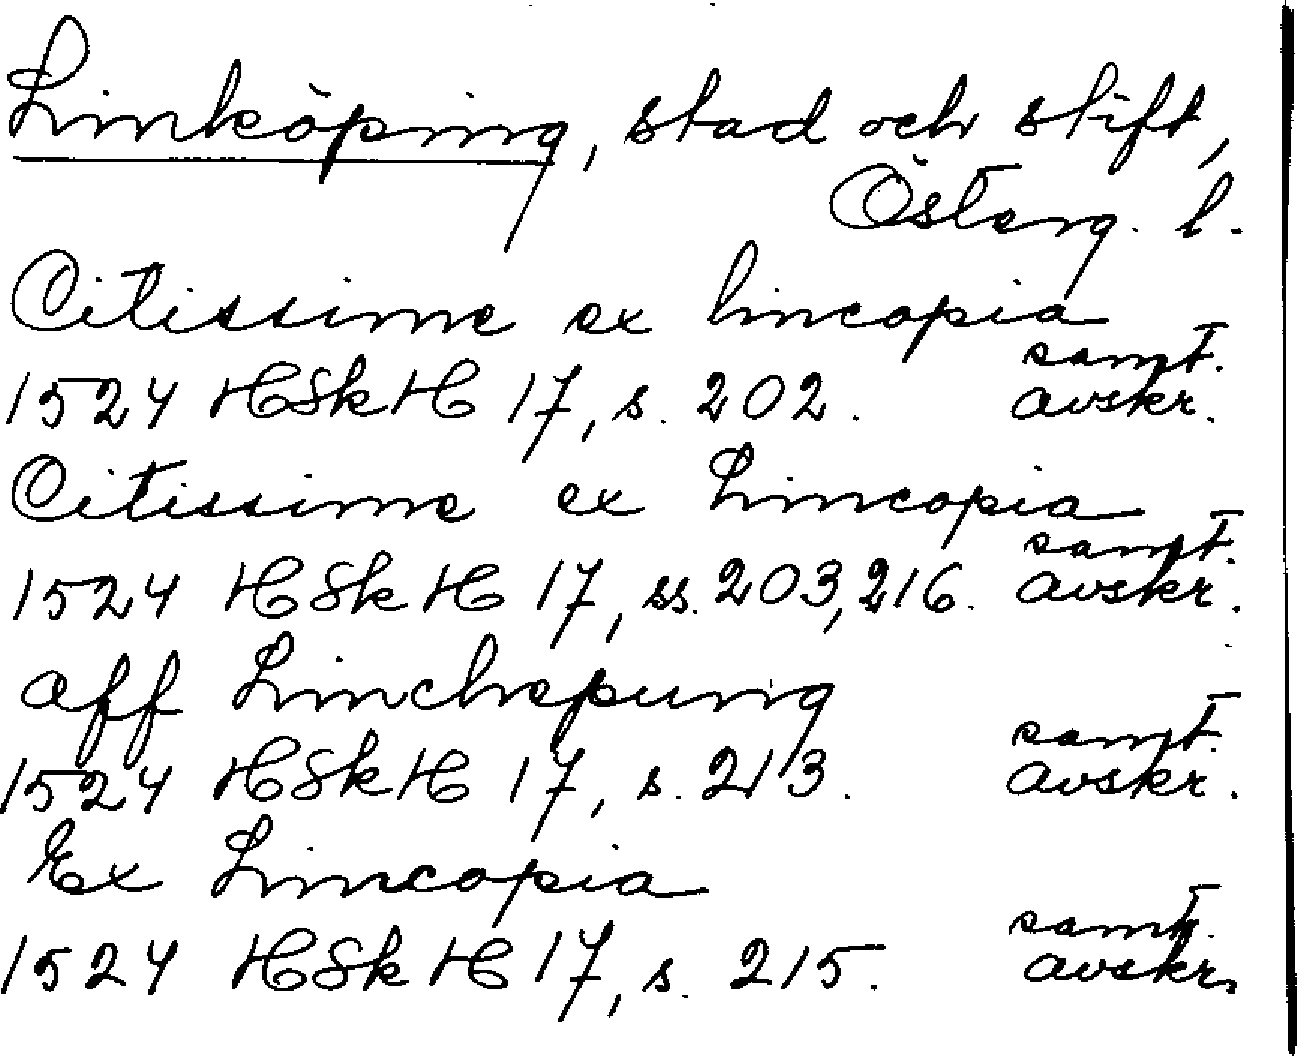 Linköping, stad och stift,
Österg. l.
Citissime ex lincopia
samt.
1524 HSkH 17, s. 202. avskr.
Citissime ex Lincopia
samt.
1524 HSkH 17, ss. 203, 216. avskr.
aff Linchepung
samt.
1524 HSkH 17, s. 213. avskr.
Ex Lincopia
samt.
1524 HSkH 17, s. 215. avskr.